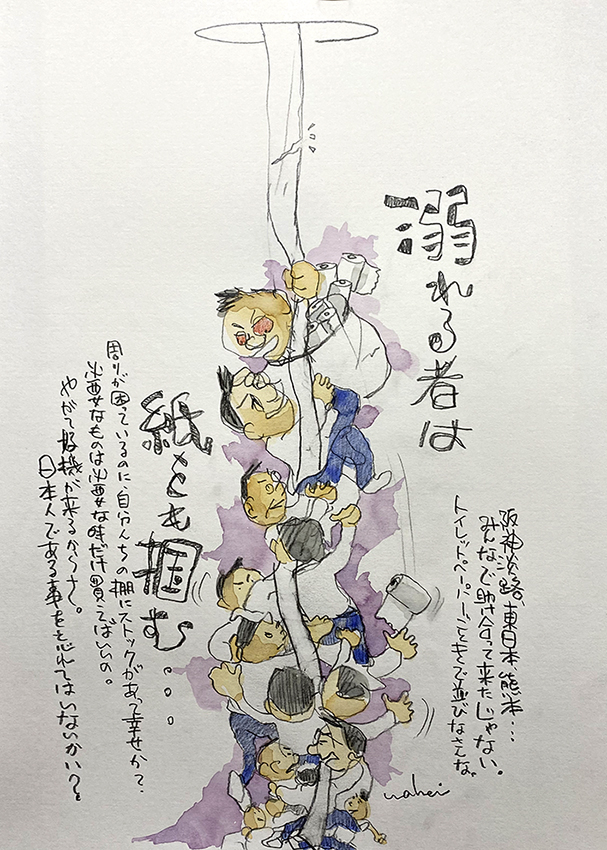 溺れる者は
紙をも掴む…
阪神淡路、東日本、熊本…
みんなで助け合って来たじゃない。
トイレットペーパーごときで並びなさんな。
周りが困っているのに、自分んちの棚にストックがあって幸せか?
必要なものは必要な時だけ買えばいいの。
やがて好機が来るからさ。
日本人である事を忘れてはいないかい?